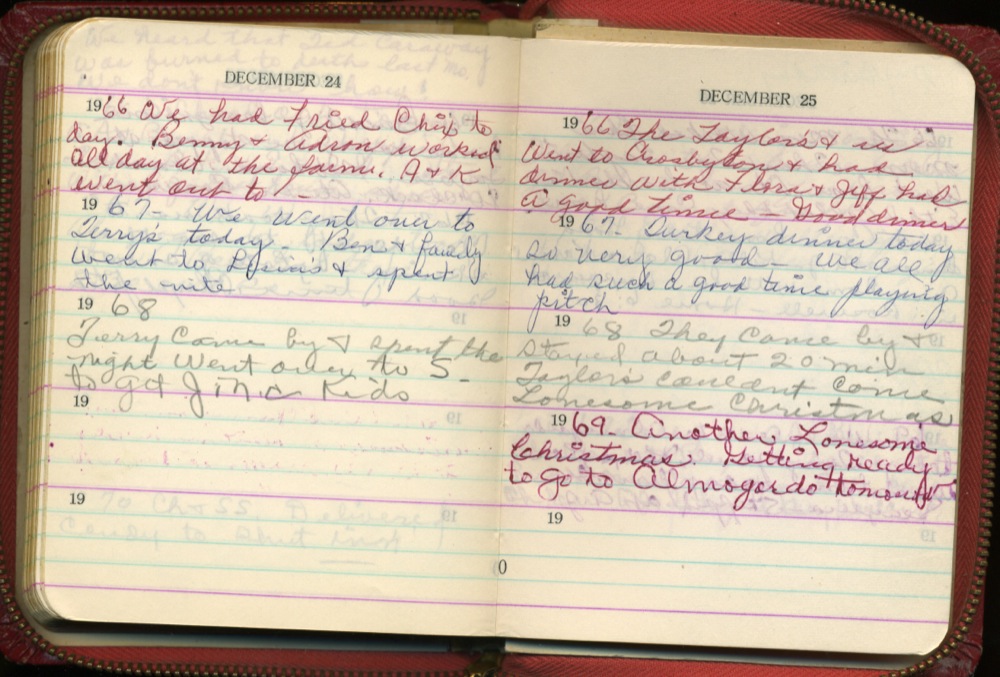 We heard that Ted Caraway
was burned to death last mo.
We don't
DECEMBER 24
1966 We had Fried Chix to
day. Benny & Adron worked
all day at the farm. A & K
went out to –
1967– We went over to
Terry's today – Ben & family
went to & spent
the nite
1968
Terry Came by & spent the
night Went over to S–
to get J m c Kids
19
1970 Ch & SS. Delivered
Candy to Shut ins
DECEMBER 25
1966 The Taylors & us
Went to Crosbyton & had
dinner with Flora & Jeff had
a good time – Good dinner
1967– Turkey dinner today
so very good – We all
had such a good time playing
pitch
1968 They Came by &
stayed about 20 min
Taylors couldnt Come
Lonesome Christmas
1969. Another Lonesome
Christmas. Getting ready
to go to Almogordo tomorrow
19
0